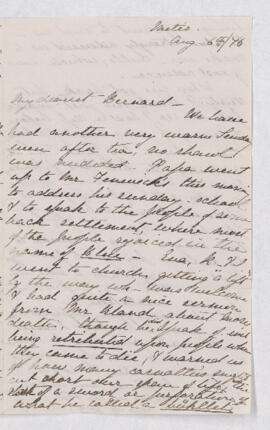 Metis.
Aug. 6th/76
My dearest Bernard –
We have
had another very warm Sunday
even after tea, no shawl
was needed. Papa went
up to Mr this morning
to address his Sunday-school
& to speak to the people of some
back settlement, where most
of the people rejoiced in the
name of Eva, K. & I
went to church, getting a lift
by the way wh. was welcome
& had quite a nice sermon
from Mr Bland about
death, though he spoke of
being upon people when
they came to die, & warned us
of how many casualties might
cut short our span of life, the
of a sword or
what he called a